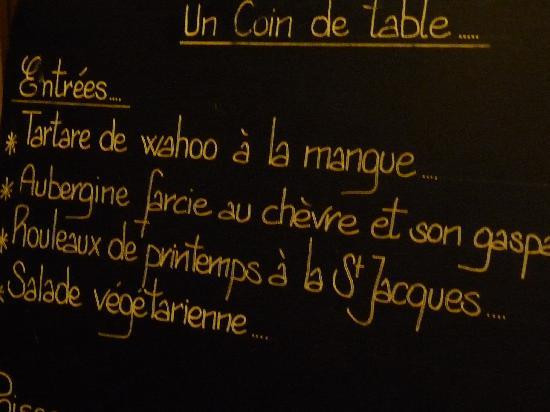 Un Coin de table.....
Entrées....
* Tartare de wahoo à la mangue....
* Aubergine farcie au chèvre et son gaspa
* Rouleaux de printemps à la St Jacques....
* Salade végétarienne....